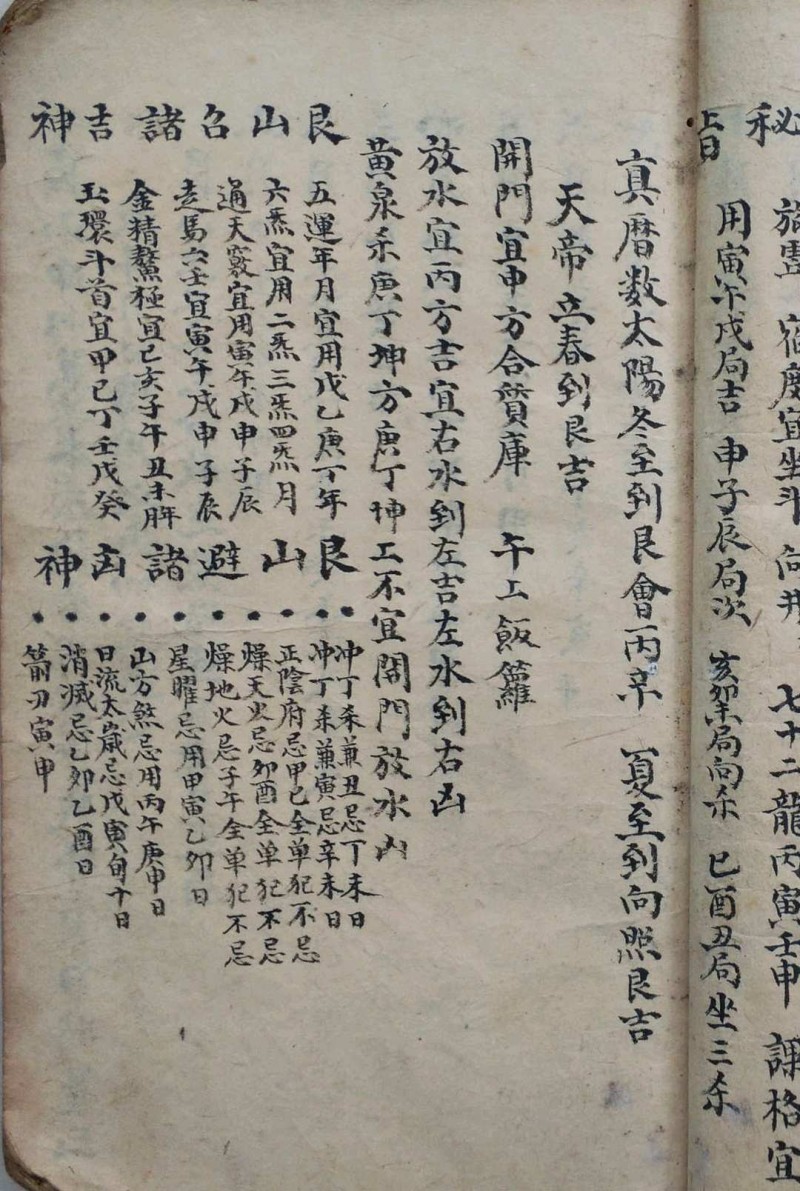 秘
旨
宿度宜坐斗 向井 七十二龍丙寅壬申 課格宜
用寅午戌局吉 申子辰局次 亥卯未局向杀 巳酉丑局坐三杀
真曆数太陽冬至到艮會丙辛 夏至到向照艮吉
天帝立春到艮吉
開門宜申方合質庫 午工飯籮
放水宜丙方吉宜右水到左吉左水到右凶
黄泉杀庚丁坤方庚丁坤工不宜開門放水凶
艮山召諸吉神
五運年月宜用戊乙庚丁年
六炁宜用二炁三炁四炁月
通天竅宜用寅午戌申子辰
走馬六壬宜寅午戌申子辰
金精鰲極宜巳亥子午丑未年
玉環斗首宜甲己丁壬戊癸
艮山避諸凶神
冲丁杀兼丑忌丁未日
冲丁杀兼寅忌辛未日
正陰府忌甲己全单犯不忌
燥天火忌卯酉全单犯不忌
燥地火忌子午全单犯不忌
星曜忌用甲寅乙卯日
山方煞忌用丙午庚申日
日流太歲忌戊寅旬十日
消滅忌乙卯乙酉日
箭刃寅申